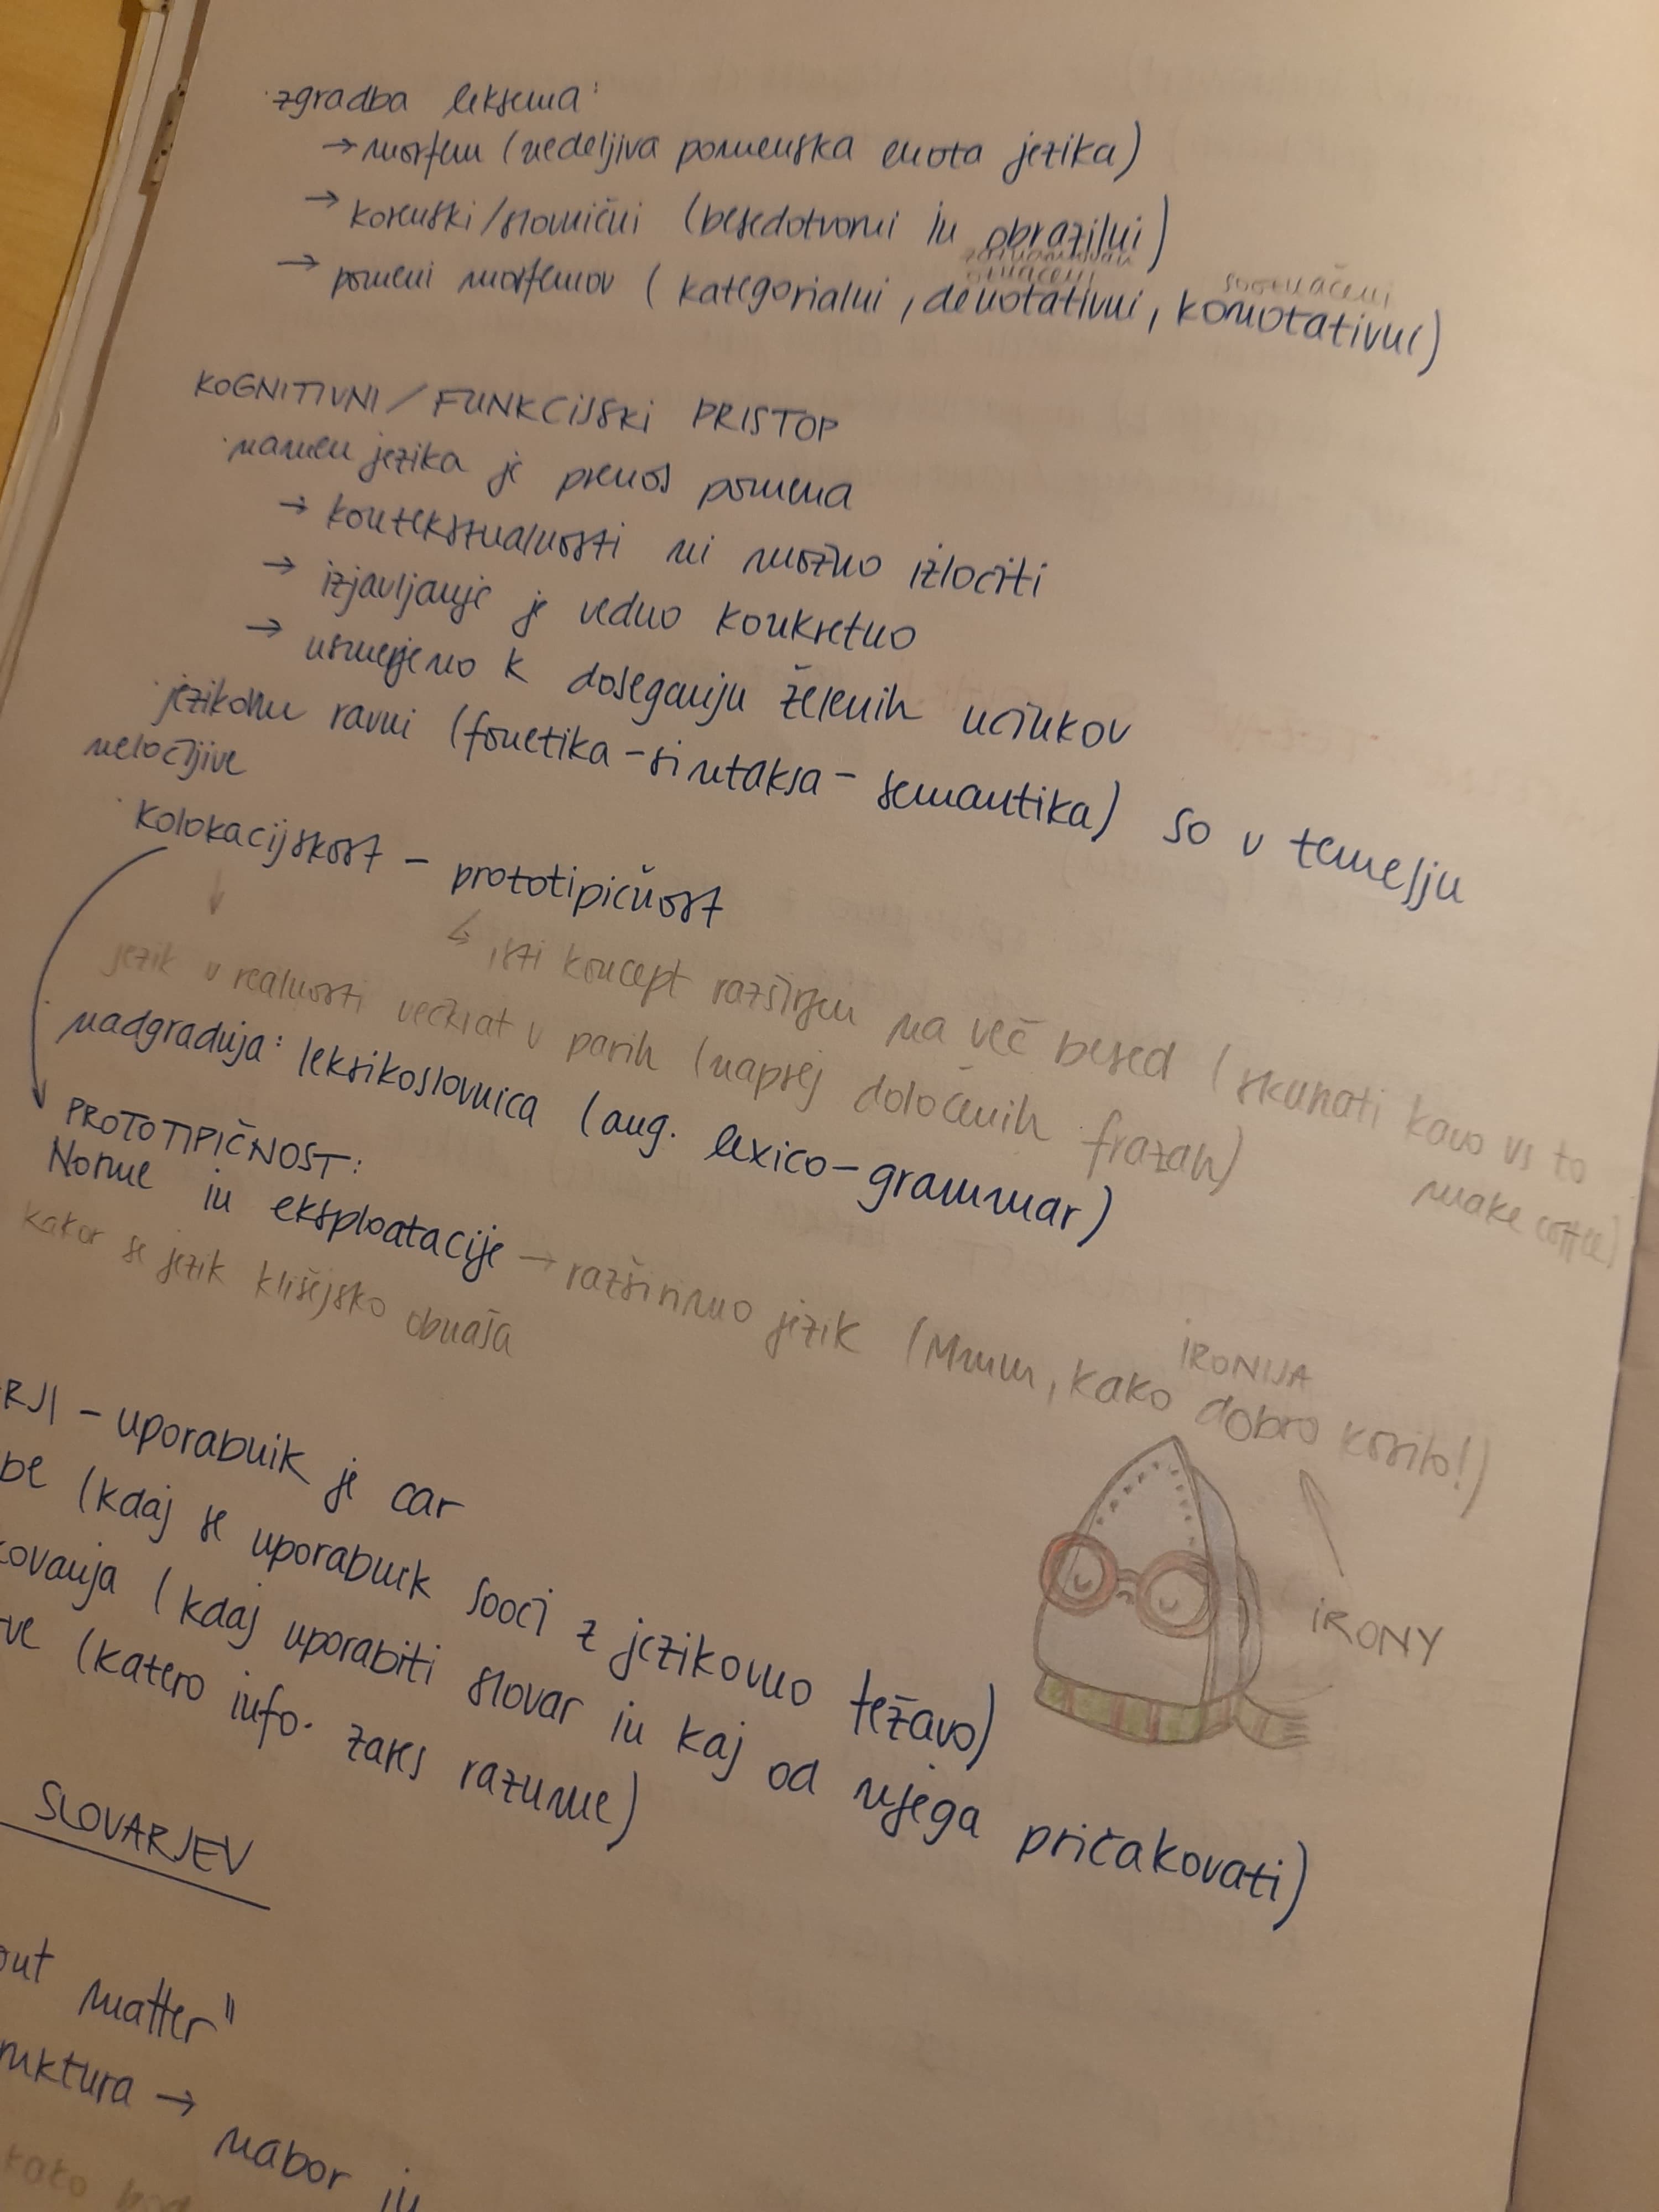 ·zgradba leksema:
→ morfem (nedeljiva pomenska enota jezika)
→ korenski/slovnični (besedotvorni in obrazilni)
označeni sooznačeni
→ pomeni morfemov (kategorialni, denotativni, konotativni)
KOGNITIVNI/FUNKCIJSKI PRISTOP
·namen jezika je prenos pomena
→ kontekstualnosti ni možno izločiti
→ izjavljanje je vedno konkretno
→ usmerjeno k doseganju želenih učinkov
·jezikovne ravni (fonetika - sintaksa - semantika) so v temelju
neločljive
·kolokacijskost - prototipičnost
↳ isti koncept razširjen na več besed (skuhati kavo vs to
make coffee)
jezik v realnosti večkrat v parih (naprej določenih frazah)
·nadgradnja: leksikoslovnica (ang. lexico-grammar)
PROTOTIPIČNOST:
Norme in eksploatacije → razširimo jezik (Mmm, kako dobro kosilo!)
IRONIJA
kakor se jezik klišejsko obnaša
RJI - uporabnik je car
be (kdaj se uporabnik sooči z jezikovno težavo)
IRONY
kovanja (kdaj uporabiti slovar in kaj od njega pričakovati)
ve (katero info. zares razume)
SLOVARJEV
out matter"
ruktura → nabor in
kako